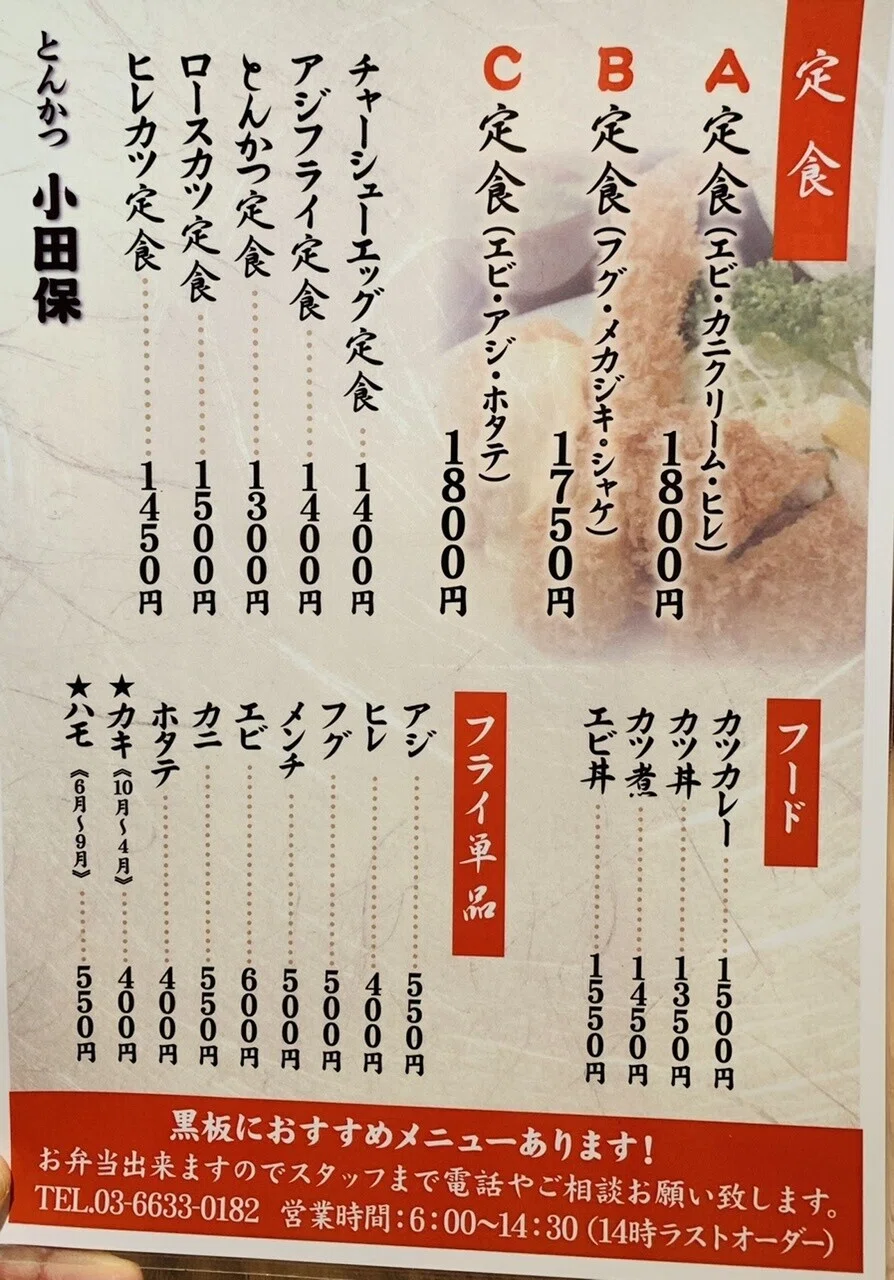 定食
A定食(エビ・カニクリーム・ヒレ) 1800円
B定食(フグ・メカジキ・シャケ) 1750円
C定食(エビ・アジ・ホタテ) 1800円
チャーシューエッグ定食 1400円
アジフライ定食 1400円
とんかつ定食 1300円
ロースカツ定食 1500円
ヒレカツ定食 1450円
とんかつ 小田保
フード
カツカレー 1500円
カツ丼 1350円
カツ煮 1450円
エビ丼 1550円
フライ単品
アジ 550円
ヒレ 400円
フグ 500円
メンチ 500円
エビ 600円
カニ 550円
ホタテ 400円
★カキ《10月〜4月》 400円
★ハモ《6月〜9月》 550円
黒板におすすめメニューあります!
お弁当出来ますのでスタッフまで電話やご相談お願い致します。
TEL.03-6633-0182 営業時間:6:00〜14:30(14時ラストオーダー)